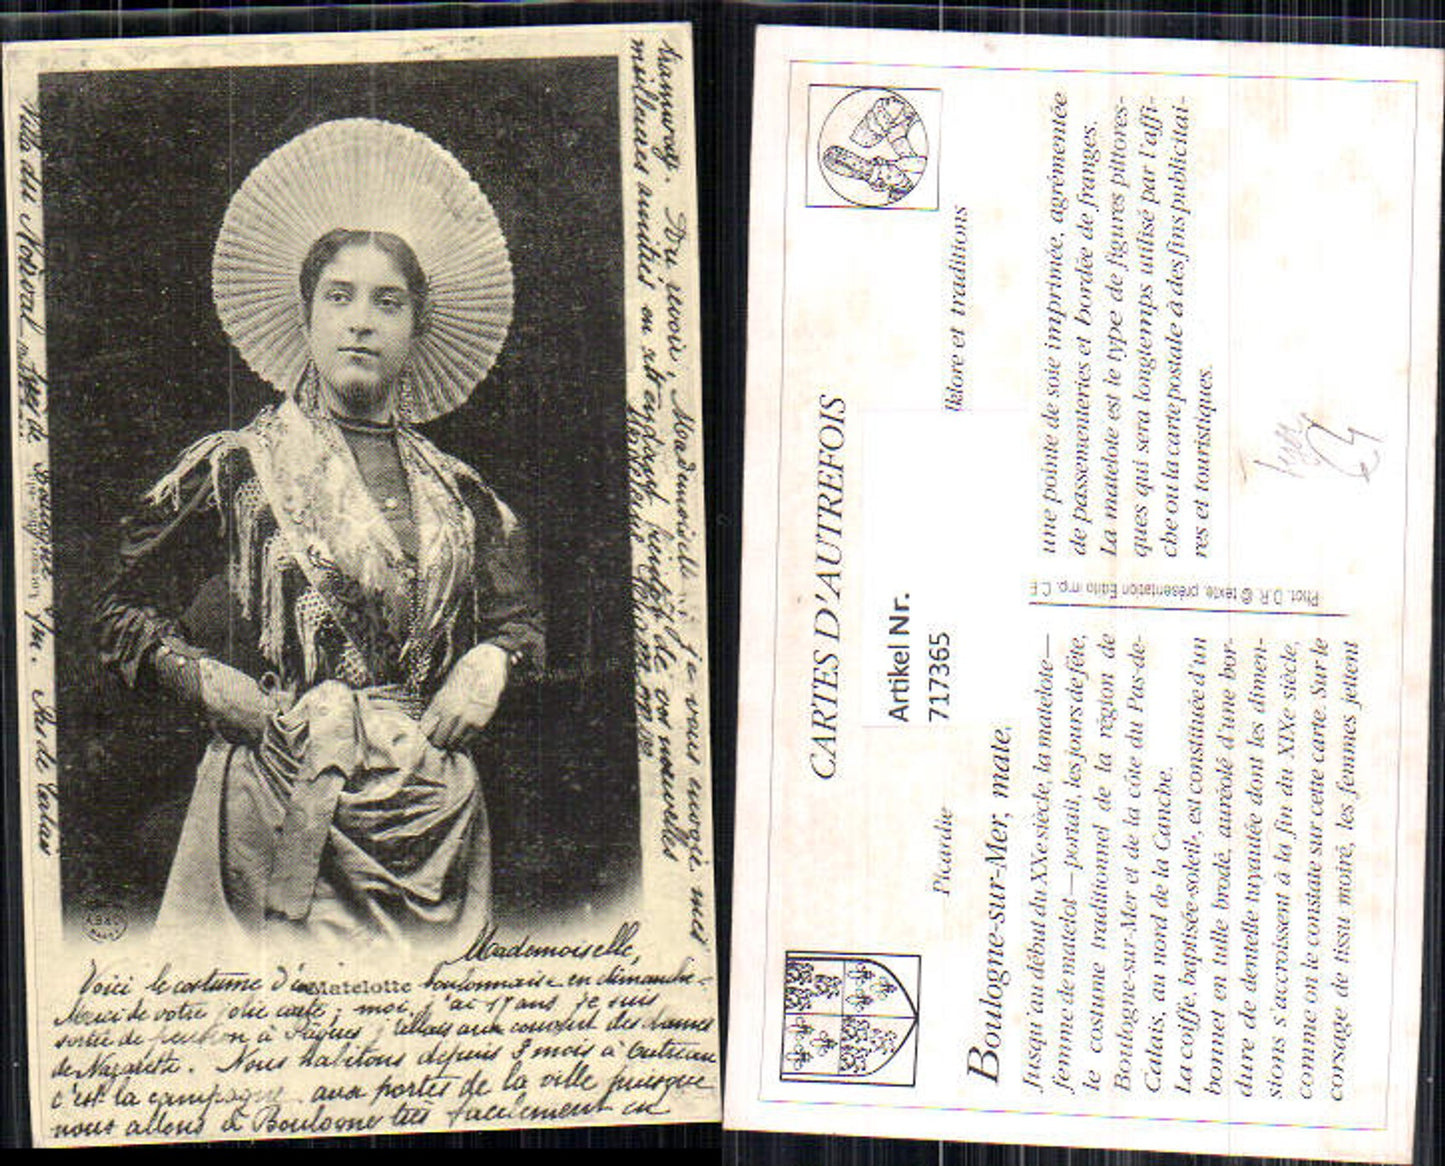 Mademoiselle,
Voici le costume d'une Matelotte boulonnaise en dimanche.
Merci de votre jolie carte; moi, j'ai 17 ans je suis
sortie de pension à Pâques j'étais au couvent des dames
de Nazareth. Nous habitons depuis 3 mois à Outreau
c'est la campagne aux portes de la ville puisque
nous allons à Boulogne très facilement en
tramway. Au revoir, Mademoiselle, je vous envoie mes
meilleures amitiés en attendant bientôt de vos nouvelles
Villa du Noirval
Pas de Calais
CARTES D'AUTREFOIS
Picardie
lklore et traditons
Artikel Nr.
717365
Boulogne-sur-Mer, mate.
Jusqu'au début du XXe siècle, la matelote—
femme de matelot—portait, les jours de fête,
le costume traditionnel de la région de
Boulogne-sur-Mer et de la côte du Pas-de-
Calais, au nord de la Canche.
La coiffe, baptisée «soleil», est constituée d'un
bonnet en tulle brodé, auréolé d'une bor-
dure de dentelle tuyautée dont les dimen-
sions s'accroissent à la fin du XIXe siècle,
comme on le constate sur cette carte. Sur le
corsage de tissu moiré, les femmes jettent
une pointe de soie imprimée, agrémentée
de passementeries et bordée de franges.
La matelote est le type de figures pittores-
ques qui sera longtemps utilisé par l'affi-
che ou la carte postale à des fins publicitai-
res et touristiques.
Phot. D.R. © texte, présentation Edito imp. C.E.